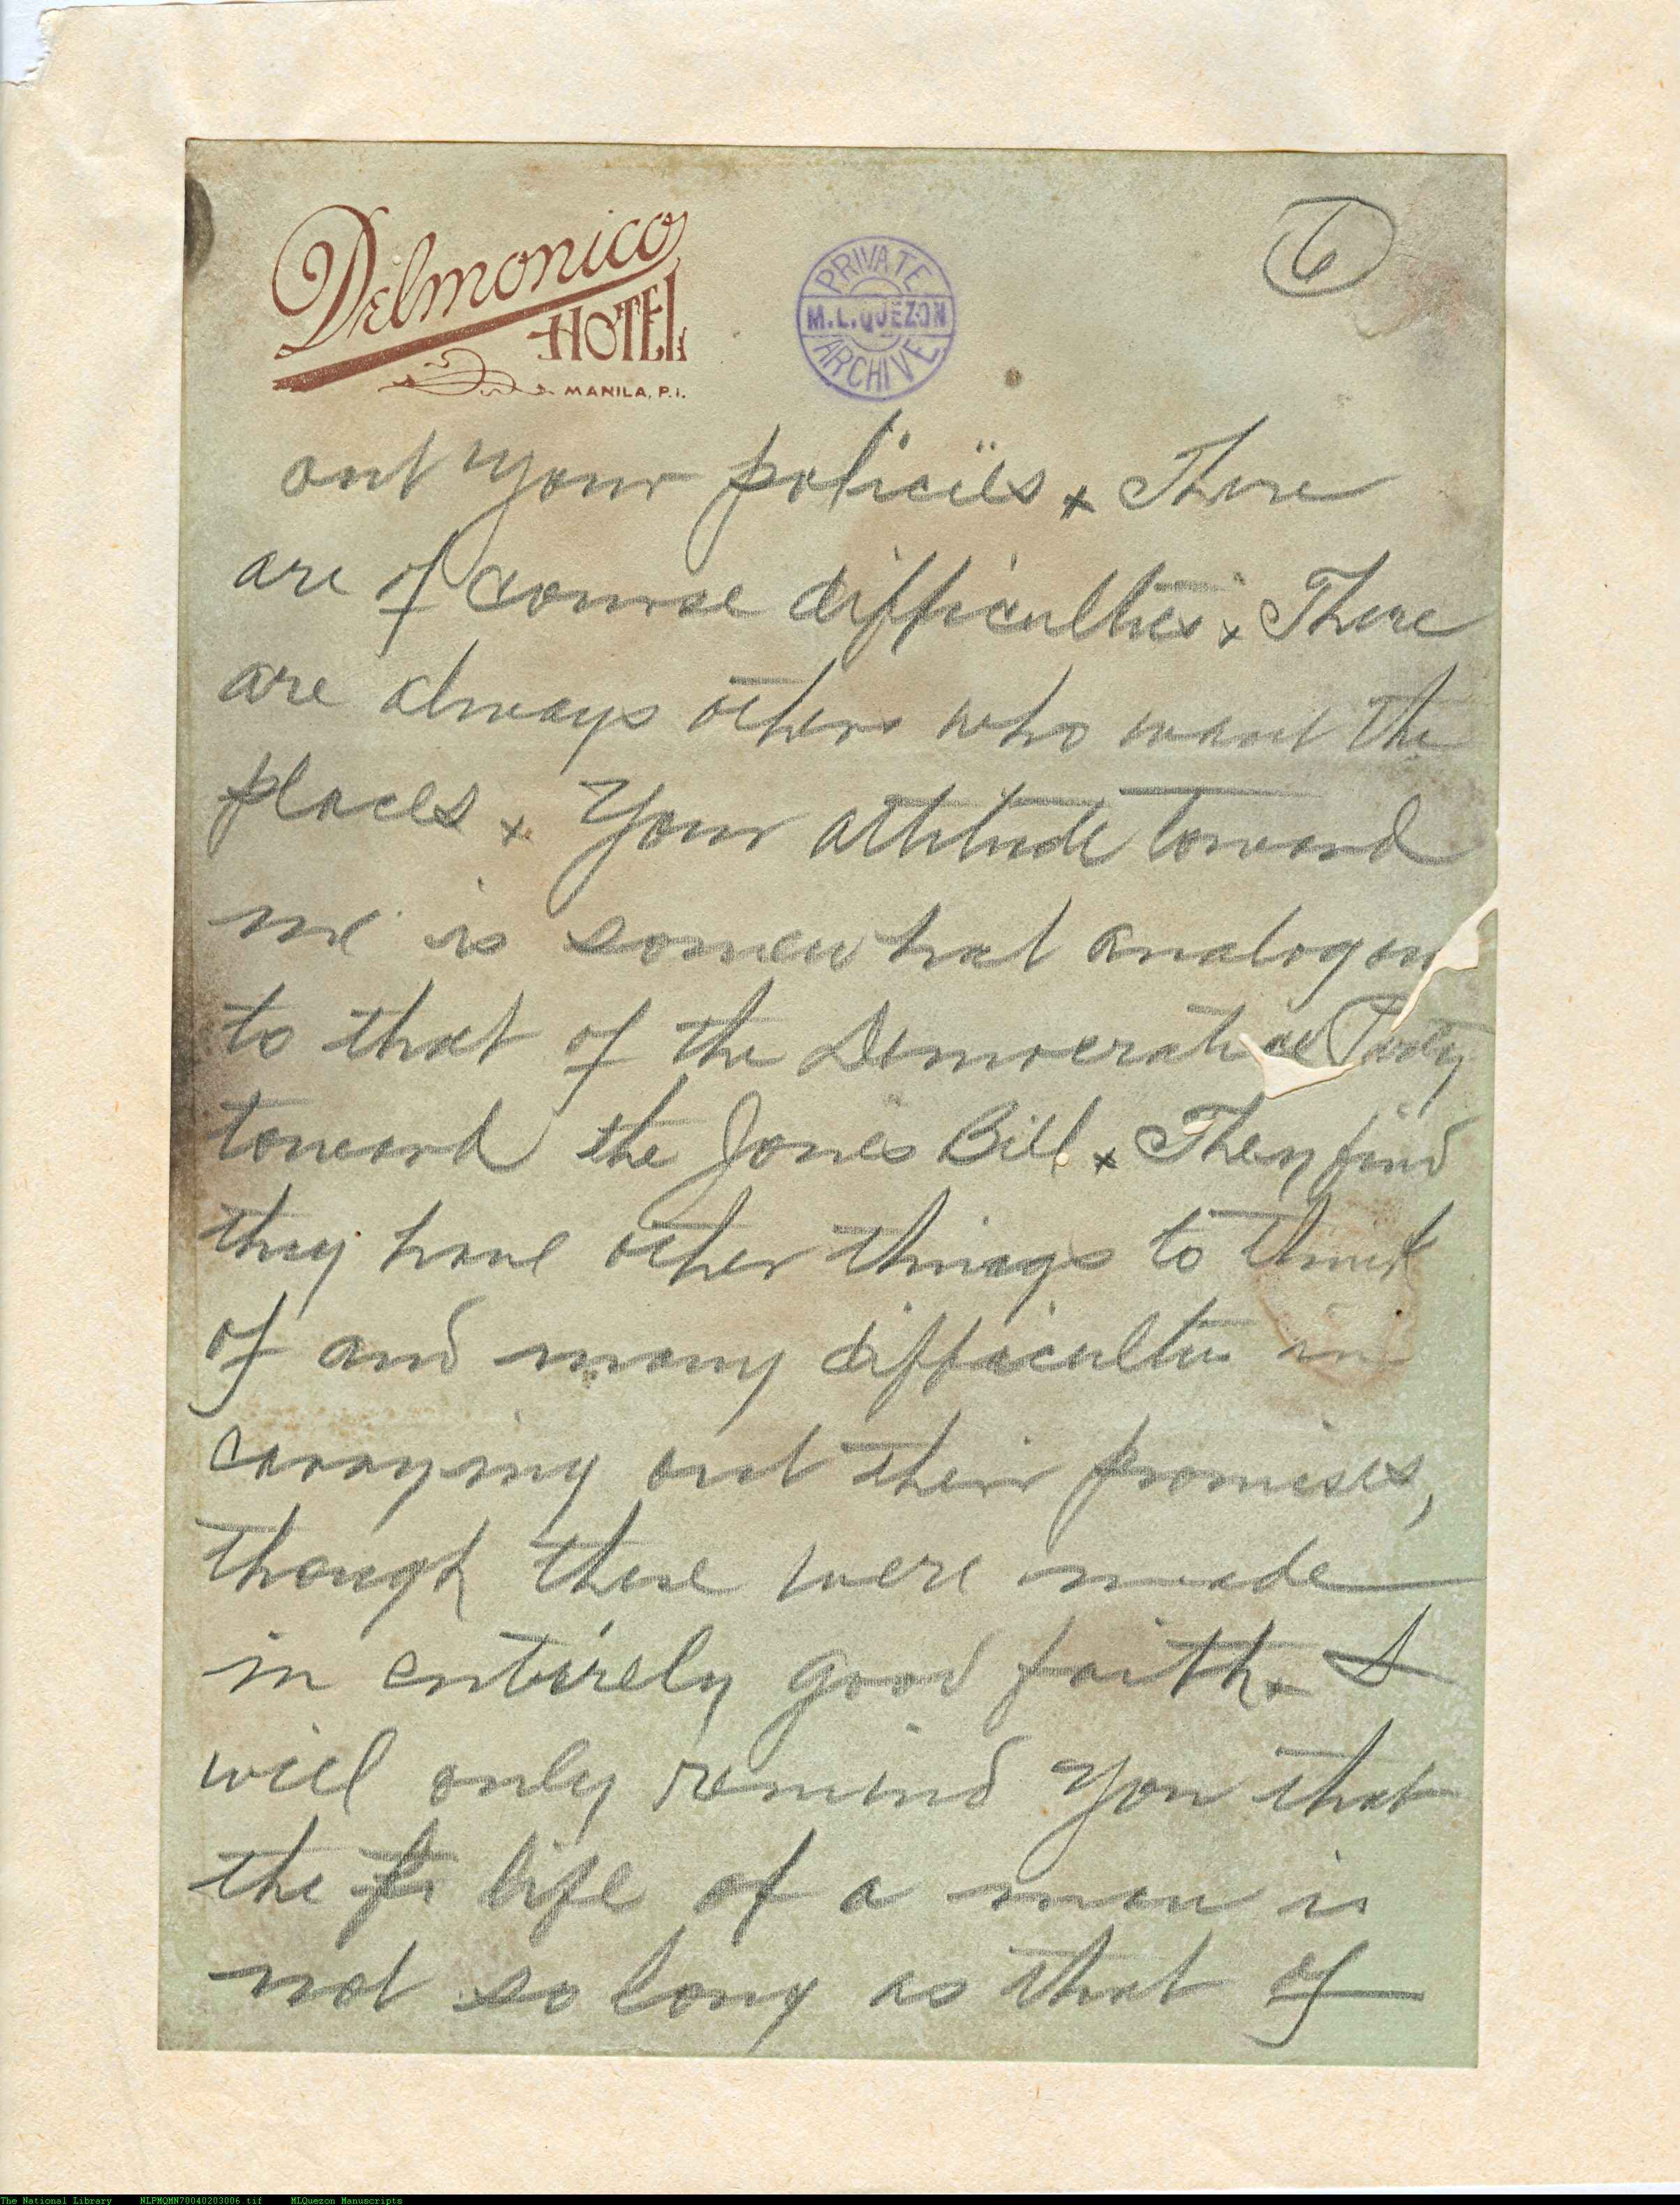 Delmonico
HOTEL
MANILA, P.I.
PRIVATE
M.L.QUEZON
ARCHIVE
6
out your policies x There
are of course difficulties x There
are always others who want the
places x Your attitude toward
me is somewhat analogou
to that of the Democratic Party
toward the Jones Bill x They find
they have other things to think
of and many difficulties in
carrying out their promises,
though these were made
in entirely good faith x I
will only remind you that
the life of a man is
not so long as that of
The National Library NLPMQMN70040203006.tif MLQuezon Manuscripts